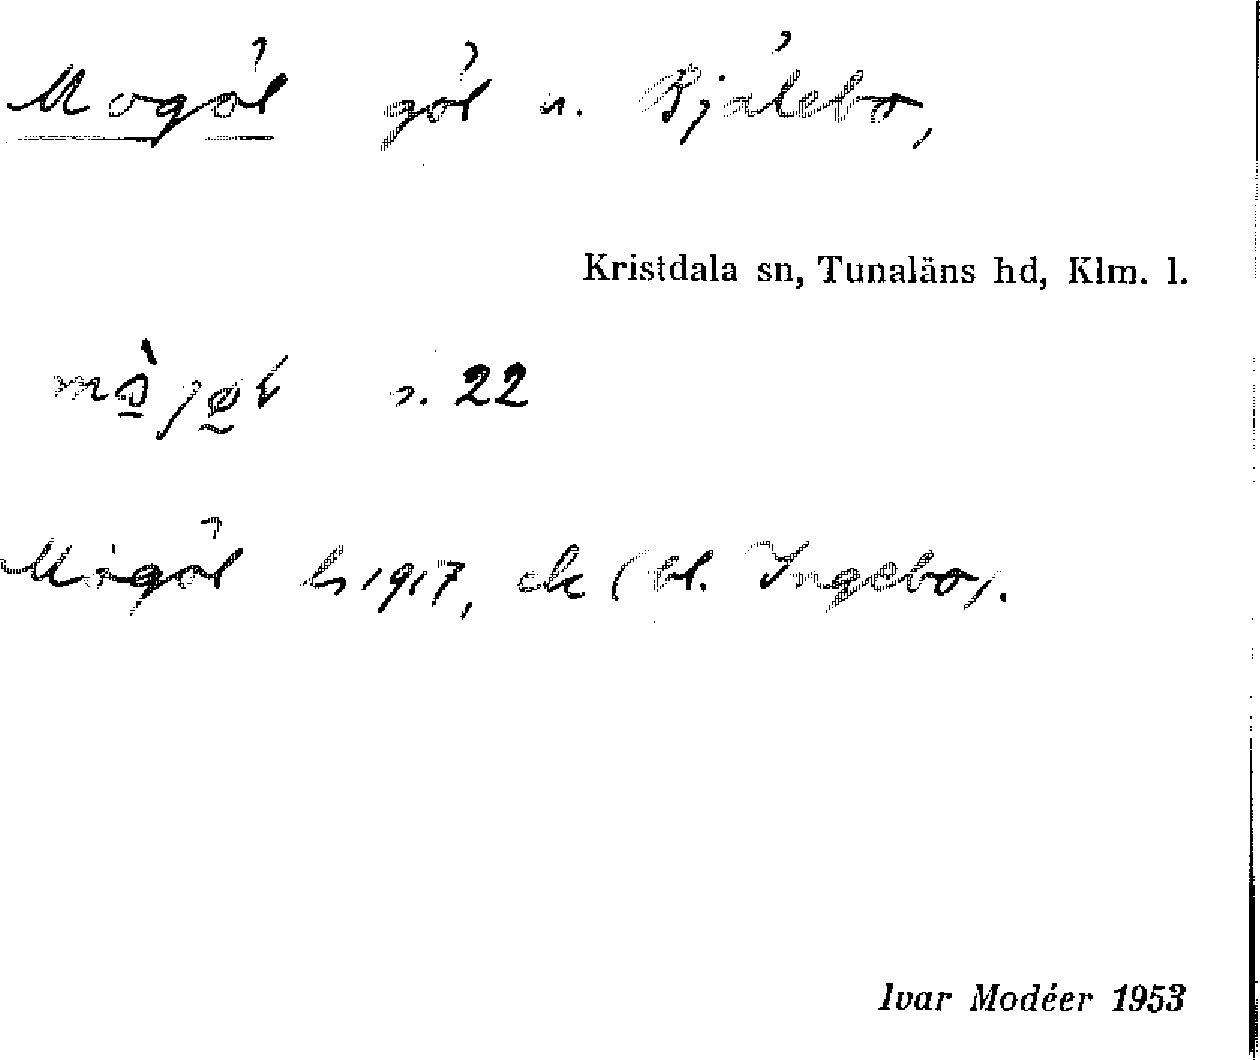 Mogöl göl n. Bjälebo,
Kristdala sn, Tunaläns hd, Klm. l.
s. 22
Mogöl hs 1917, ek (bl. Ingebo).
Ivar Modéer 1953